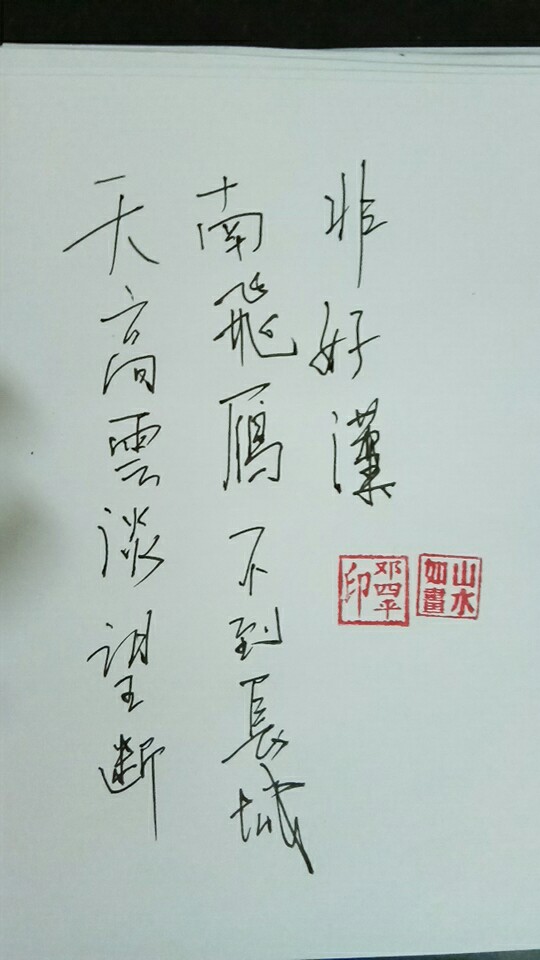 天高雲淡望断
南飛雁不到長城
非好漢
邓四平印
山水如畫